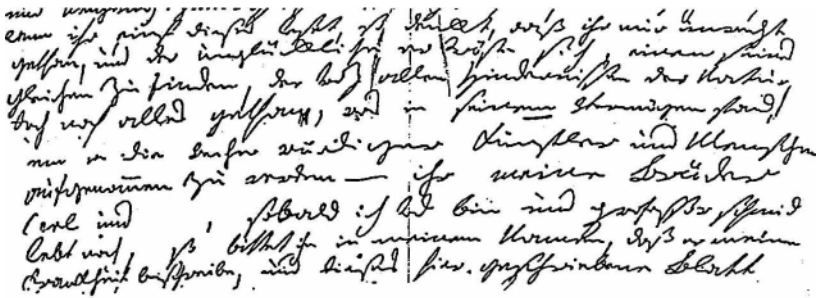 wenn ihr einst dieses leset so denkt, daß ihr mir unrecht
gethan, und der unglückliche er tröste sich, einen seines
gleichen zu finden, der troz allen Hindernissen der Natur
doch noch alles gethan, was in seinem Vermögen stand,
um in die Reihe würdiger Künstler und Menschen
aufgenommen zu werden — ihr meine Brüder
Carl und , sobald ich tod bin und professor schmid
lebt noch, so bittet ihn in meinem Namen, daß er meine
Krankheit beschreibe, und dieses hier geschriebene Blatt